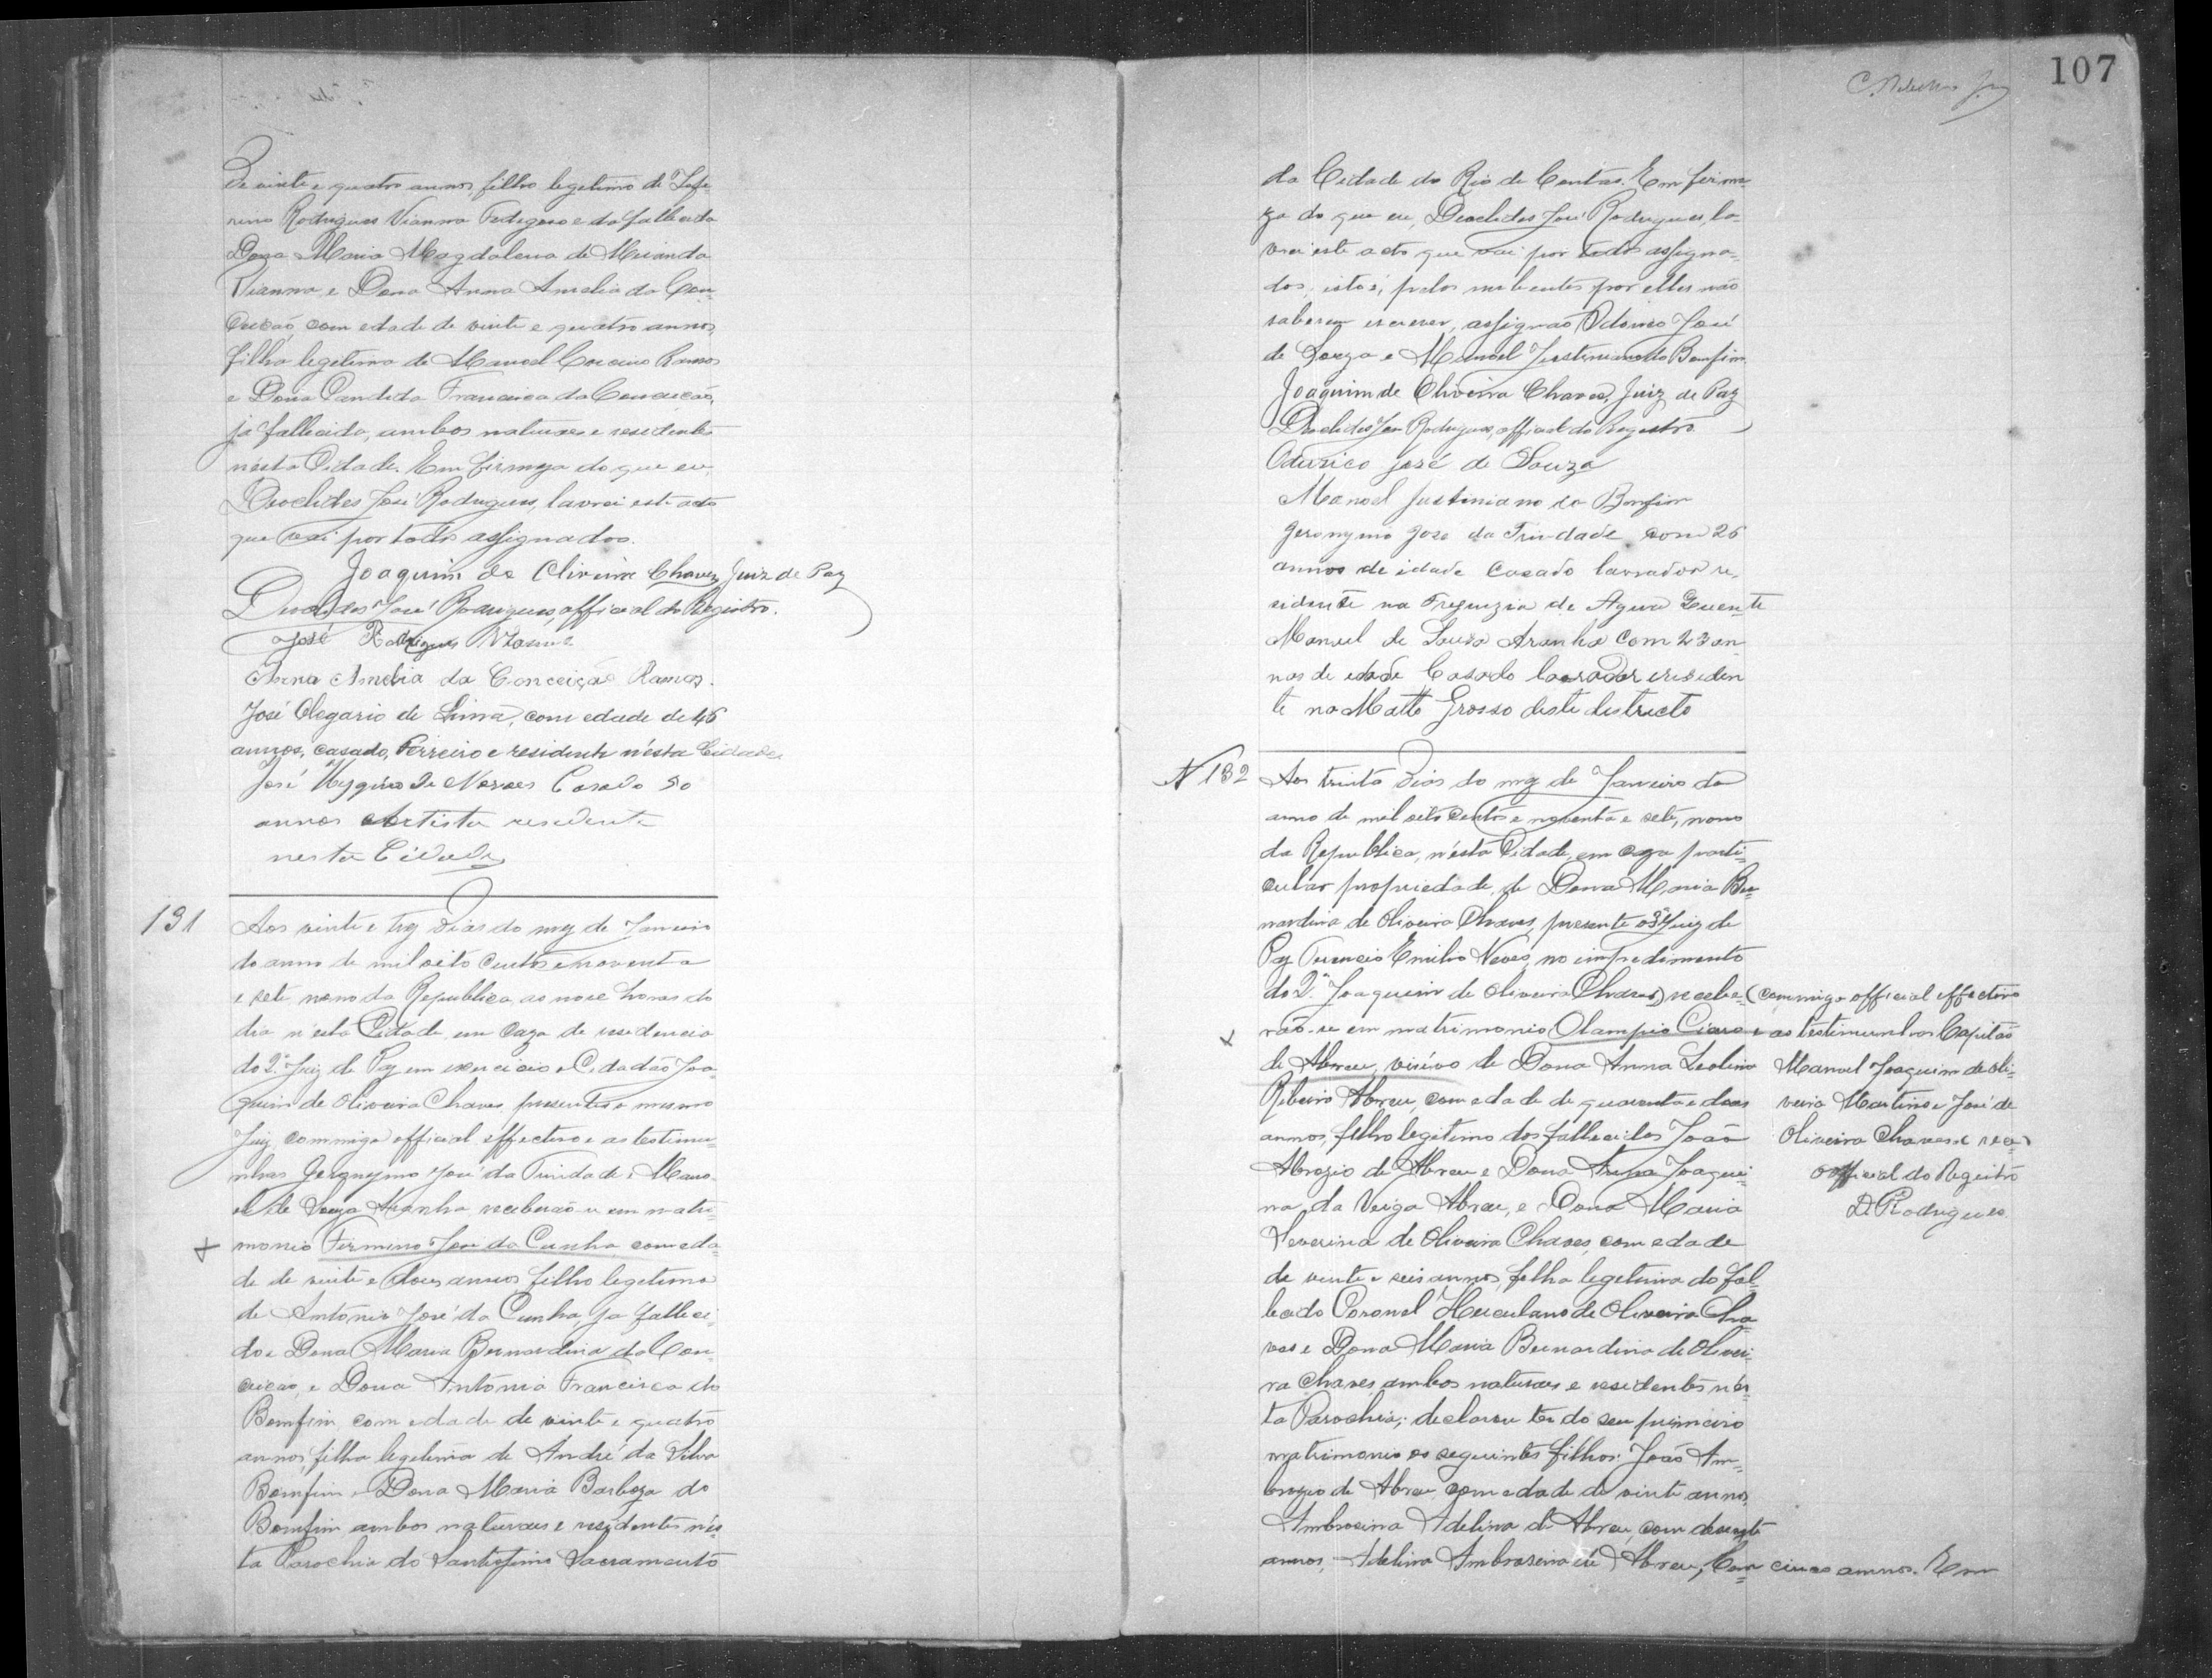 de vinte e quatro annos, filho legitimo de Zefe-
rino Rodrigues Vianna Fedegoso e da fallecida
Dona Maria Magdalena de Miranda
Vianna, e Dona Anna Amelia da Con-
ceicão com edade de vinte e quatro annos,
filha legitima de Manoel Ramos
e Dona Candida Francisca da Conceição,
ja fallecida, ambos naturaes e residentes
nésta Cidade. Em firmeza do que eu,
Deoclides José Rodrigues, lavrei este acto
que vai por todos assignados.
Joaquim de Oliveira Chaves, Juiz de Paz
Deoclides José Rodrigues, official do Registro.
José Rodrigues Vianna
Anna Amelia da Conceição Ramos.
José Olegario de Lima, com edade de 46
annos, casado, Ferreiro e residente n'esta Cidade
José de Moraes Casado 50
annos Artista residente
nesta Cidade
131
Aos vinte e trez dias do mez de Janeiro
do anno de mil oito centos e noventa
e sete, nono da Republica, as nove horas do
dia n'esta Cidade em caza de residencia
do 2º Juiz de Paz em exercicio o Cidadão Joa-
quim de Oliveira Chaves, presentes o mesmo
Juiz, commigo official effectivo e as testimu-
nhas Jeronymo José da Trindade e Mano-
el de Souza Aranha receberão-se em matri-
monio Firmino José da Cunha com eda-
de de vinte e dous annos, filho legitimo
de Antonio José da Cunha, ja falleci-
do e Dona Maria Bernardina da Con-
ceicão, e Dona Antonia Francisca do
Bomfim, com edade de vinte e quatro
annos, filha legitima de André da Silva
Bomfim e Dona Maria Barboza do
Bomfim ambos naturaes e residentes nés-
ta Parochia do Santissimo Sacramento
107
da Cidade do Rio de Contas. Em firme-
za do que eu, Deoclides José Rodrigues, la-
vrei este acto que vai por todos assigna-
dos, isto é, pelos nubentes por elles não
saberem escrever, assignão Odorico José
de Souza e Manoel Justiniano do Bomfim.
Joaquim de Oliveira Chaves, Juiz de Paz
Deoclides José Rodrigues, official do Registro
Odorico José de Souza
Manoel Justiniano do Bomfim
Jeronymo Jose da Trindade com 26
annos de idade casado lavrador re-
sidente na Freguzia de Agua Quente
Manoel de Souza Aranha com 23 an-
nos de edade Casado lavrador eresiden
te no Matto Grosso deste districto
N 132
Aos trinta dias do mez de Janeiro do
anno de mil oito centos e noventa e sete, nono
da Republica, n'esta Cidade, em caza parti-
cular propriedade, de Dona Maria Ber-
nardina de Oliveira Chaves, presente o 3º Juiz de
Paz Terencio Emilio Neves, no impedimento
do 2º Joaquim de Oliveira Chaves) recebe-
rão-se em matrimonio Olampio Cicero
de Abreu, viúvo de Dona Anna Leolina
Ribeiro Abreu, com edade de quarenta e dous
annos, filho legitimo dos fallecidos João
Abrozio de Abreu e Dona Anna Joaqui-
na da Veiga Abreu, e Dona Maria
Severina de Oliveira Chaves, com edade
de vinte e seis annos, filha legitima do fal-
lecido Coronel Herculano de Oliveira Cha-
ves e Dona Maria Bernardina de Olivei-
ra Chaves, ambos naturaes e residentes nés-
ta Parochia; declarou ter do seu primeiro
matrimonio os seguintes filhos: João Am-
brozio de Abreu, com edade de vinte annos,
Ambrosina Adelina de Abreu, com desesete
annos, Adelina Ambrosina de Abreu, com cinco annos. Em
(commigo official effectivo
e as testimunhas Capitão
Manoel Joaquim de Oli-
veira Martins e José de
Oliveira Chaves
official do Registro
D. Rodrigues.